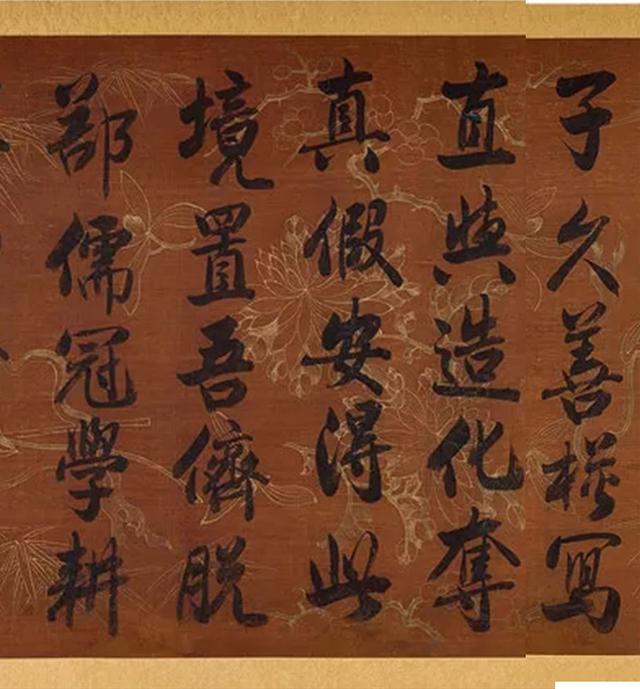 子久善模寫
直與造化奪
真假安得此
境置吾儕脫
郤儒冠學耕